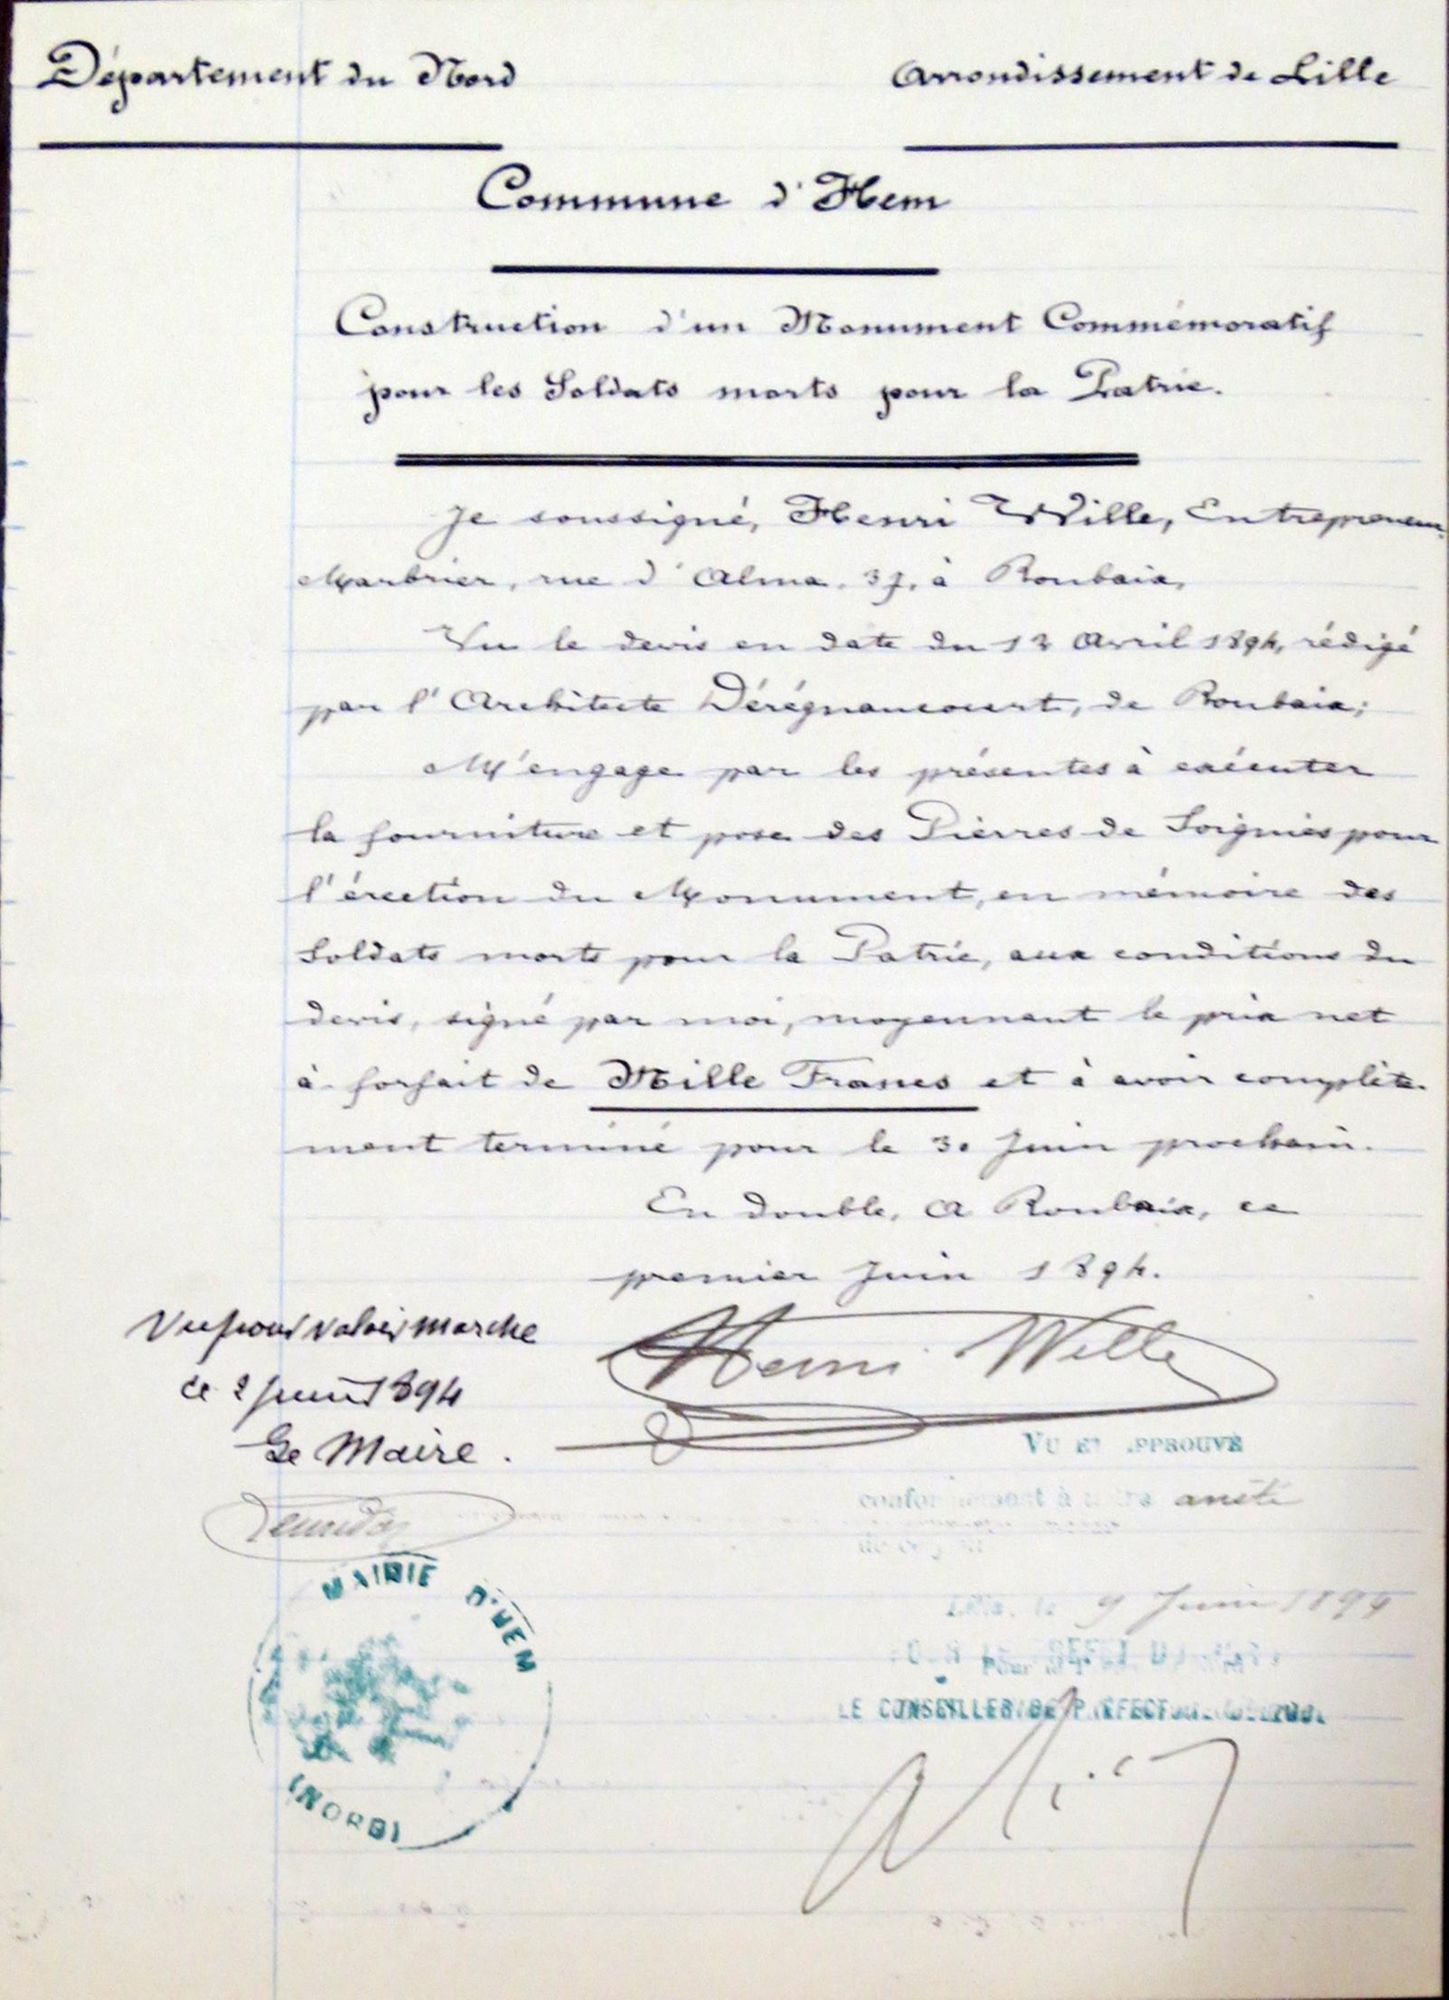 Département du Nord
Arrondissement de Lille
Commune d'Hem
Construction d'un Monument Commémoratif
pour les Soldats morts pour la Patrie.
Je soussigné, Henri Wille, Entrepreneur
Marbrier, rue d'Alma, 37, à Roubaix,
Vu le devis en date du 12 Avril 1894, rédigé
par l'Architecte Dérégnaucourt, de Roubaix;
M'engage par les présentes à exécuter
la fourniture et pose des Pierres de Soignies pour
l'érection du Monument, en mémoire des
Soldats morts pour la Patrie, aux conditions du
devis, signé par moi, moyennant le prix net
à forfait de Mille Francs et à avoir complète
ment terminé pour le 30 Juin prochain.
En double, A Roubaix, ce
premier Juin 1894.
Vu pour valoir marche
ce 2 juin 1894
Le Maire.
Henri Wille
VU ET APPROUVÉ
conformément à notre arrêté
Lille, le 9 Juin 1894
LE CONSEILLER DE PRÉFECTURE
MAIRIE D'HEM
(NORD)